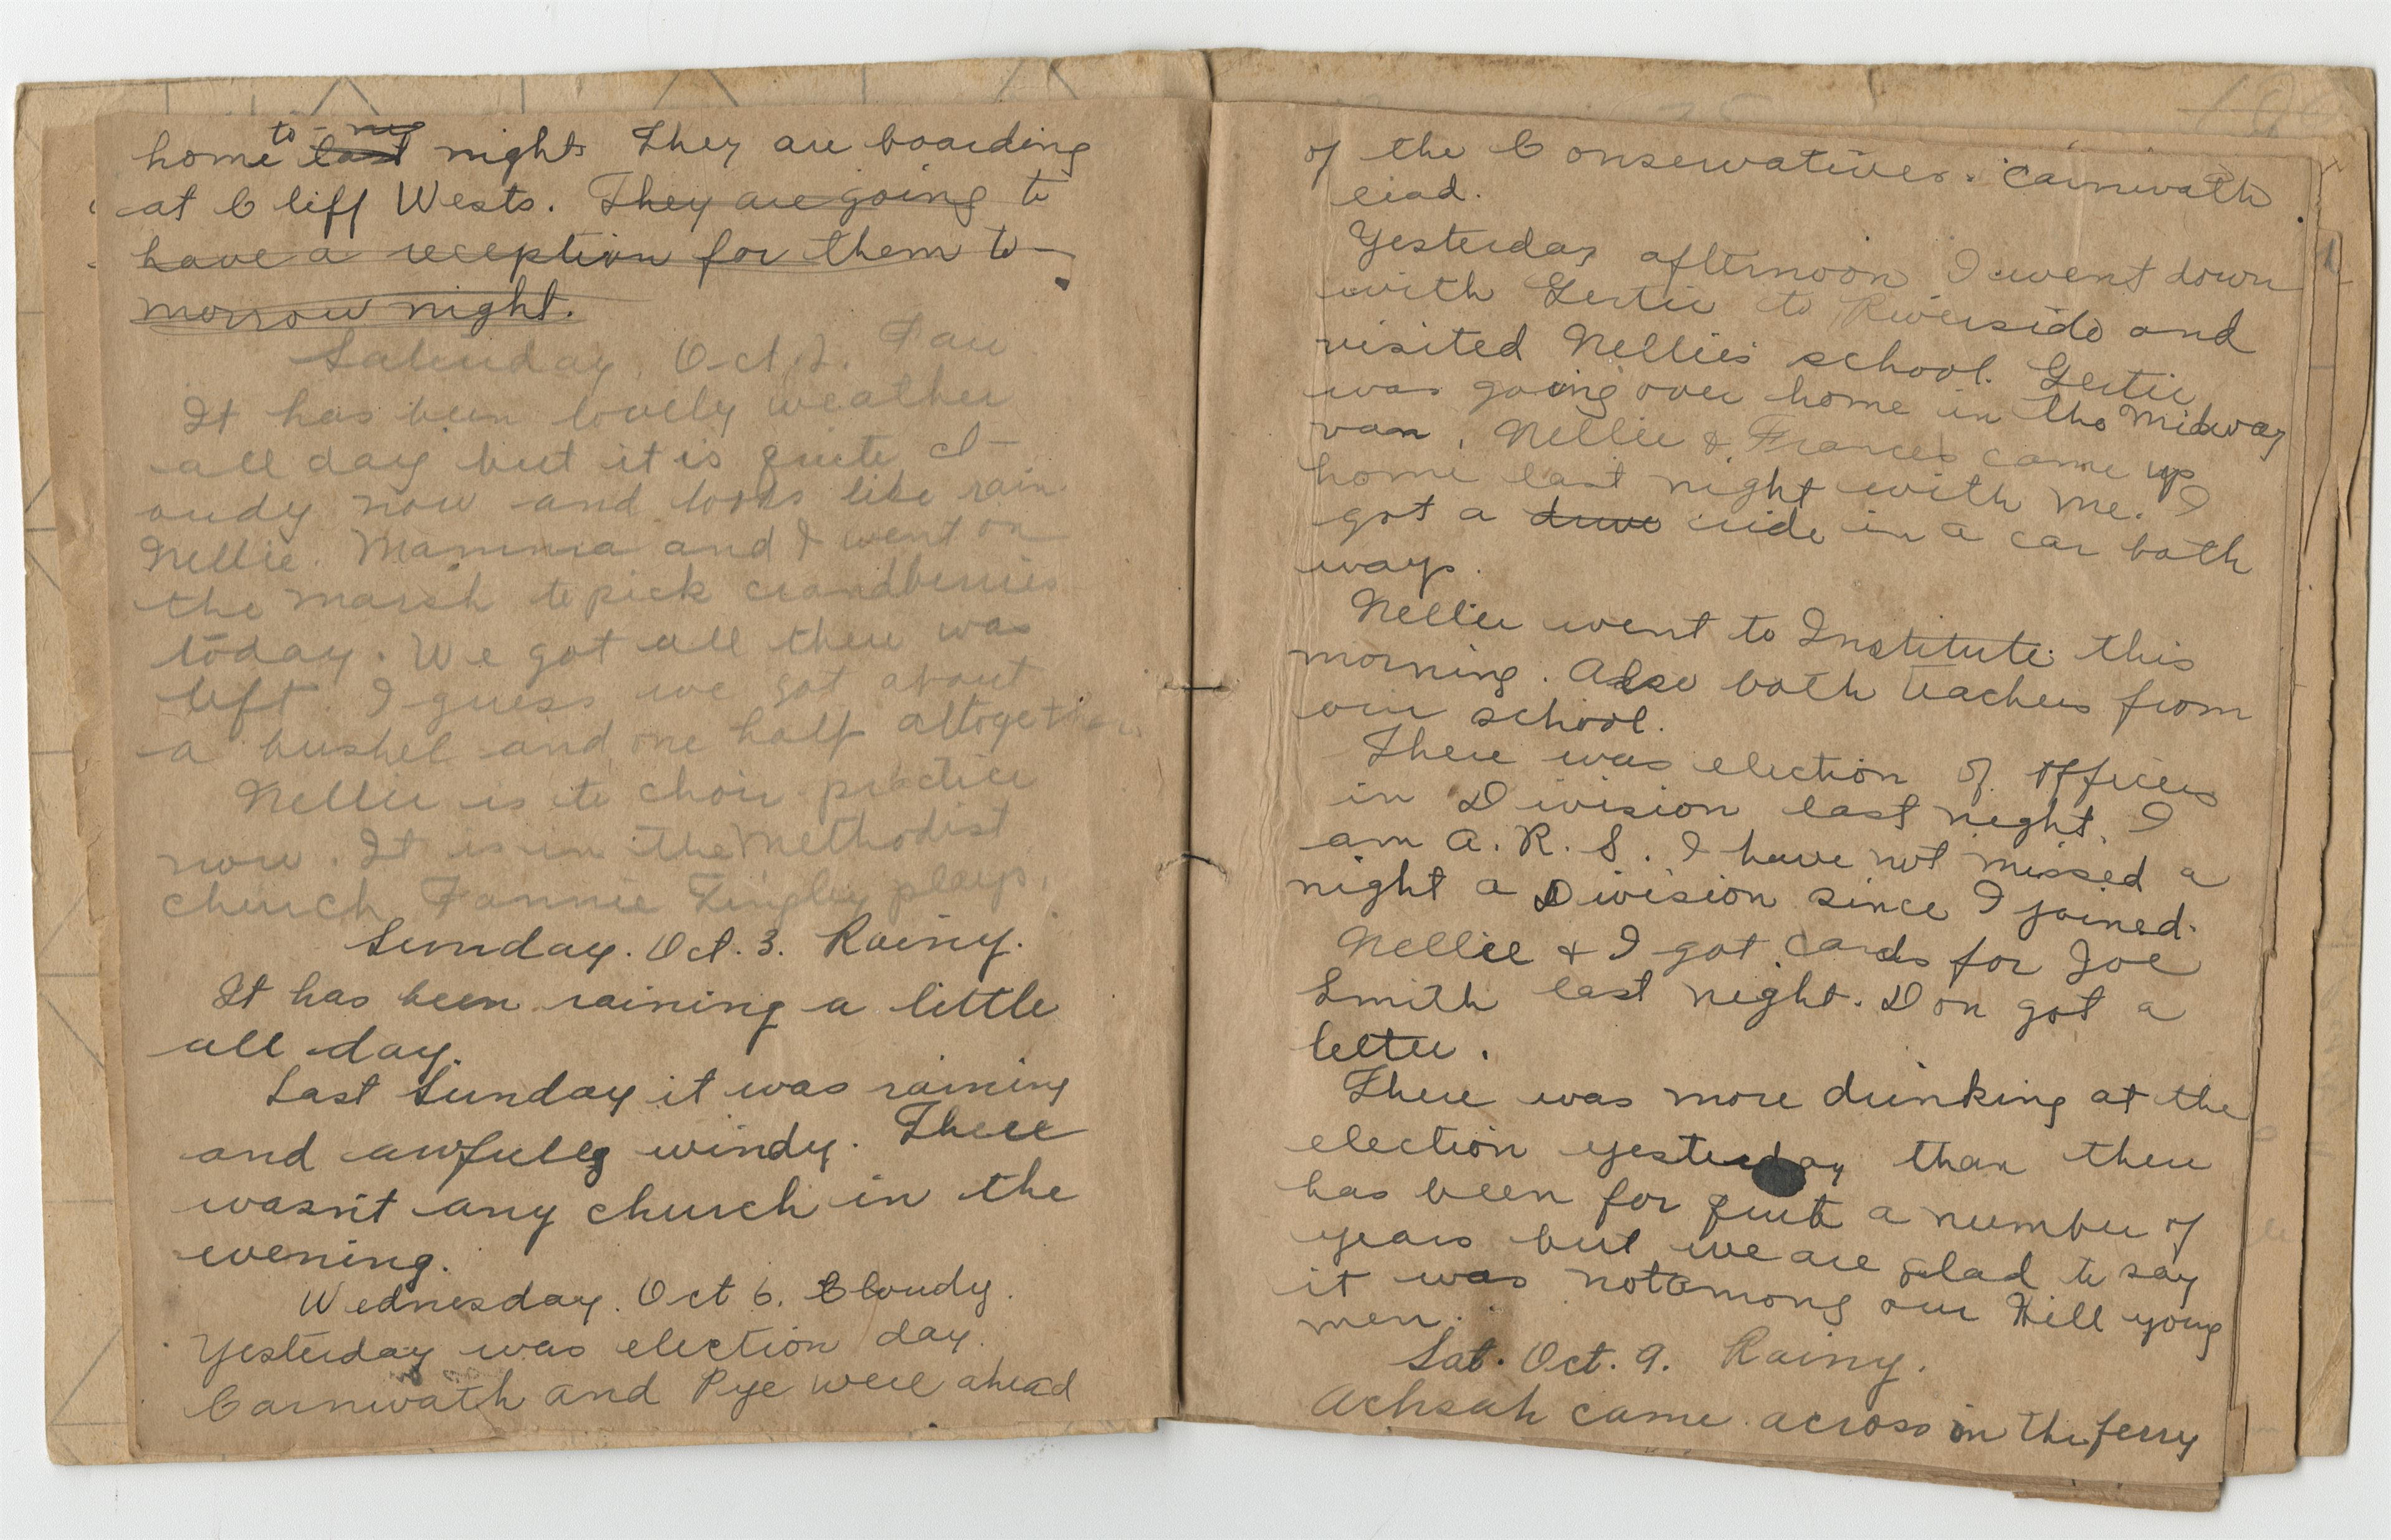 home to-night They are boarding
at Cliff Wests. They are going to
have a reception for them to-
morrow night.
Saturday, Oct 2. Fair
It has been lovely weather
all day but it is quite cl-
oudy now and looks like rain.
Nellie. Mamma and I went on
the marsh to pick crandberries
today. We got all there was
left. I guess we got about
a bushel and one half altogether.
Nellie is to choir practice
now. It is in the Methodist
church Fannie Tingley plays.
Sunday. Oct. 3. Rainy.
It has been raining a little
all day.
Last Sunday it was raining
and awfully windy. There
wasn't any church in the
evening.
Wednesday. Oct 6. Cloudy.
Yesterday was election day.
Carnwath and Pye were ahead
of the Conservatives. Carnwath
lead.
Yesterday afternoon I went down
with Gertie to Riverside and
visited Nellies school. Gertie
was going over home in the Midway
van. Nellie & Frances came up
home last night with me. I
got a drive ride in a car both
ways.
Nellie went to Institute this
morning. Also both teachers from
our school.
There was election of officers
in Division last night. I
am A. R. S. I have not missed a
night a Division since I joined.
Nellie & I got cards for Joe
Smith last night. Don got a
letter.
There was more drinking at the
election yesterday than there
has been for quite a number of
years but we are glad to say
it was not among our Hill young
men.
Sat. Oct. 9. Rainy.
Achsah came across in the ferry